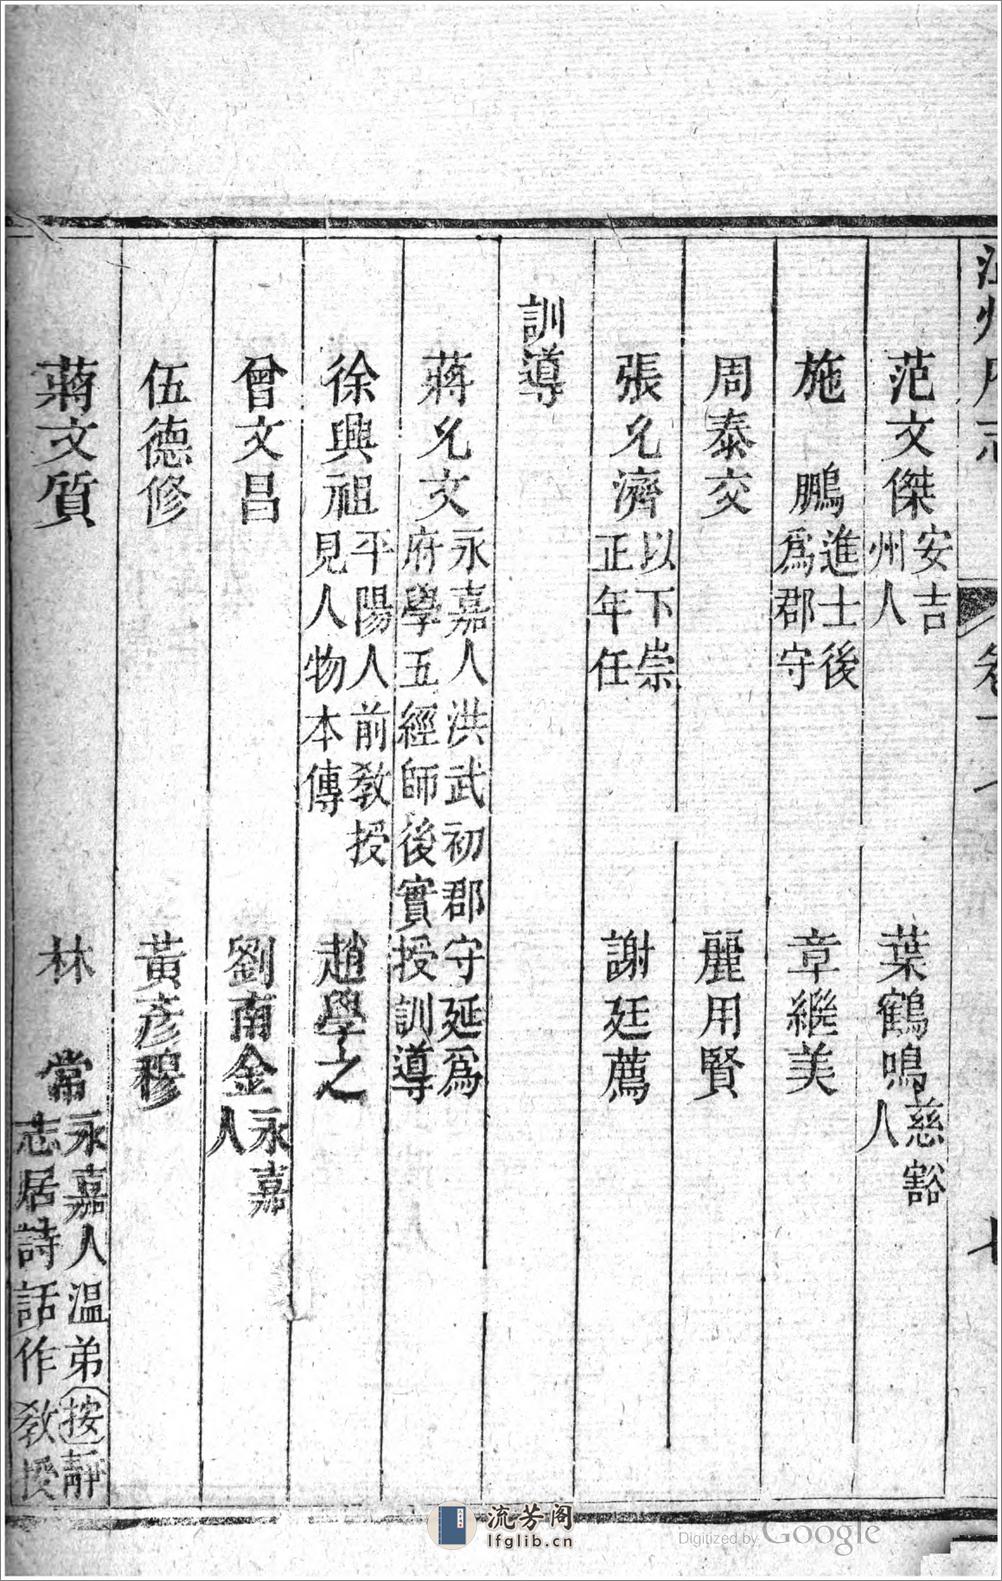 范文傑安吉州人　葉鶴鳴慈谿人
施　鵬進士後爲郡守　章繼美
周泰交　麗用賢
張允濟以下崇正年任　謝廷薦
訓導
蔣允文永嘉人洪武初郡守延爲府學五經師後實授訓導
徐興祖平陽人前教授見人物本傳　趙學之
曾文昌　劉南金永嘉人
伍德修　黃彥穆
蔣文質　林　常永嘉人溫弟按靜志居詩話作教授
流芳阁
lfglib.cn
Digitized by Google